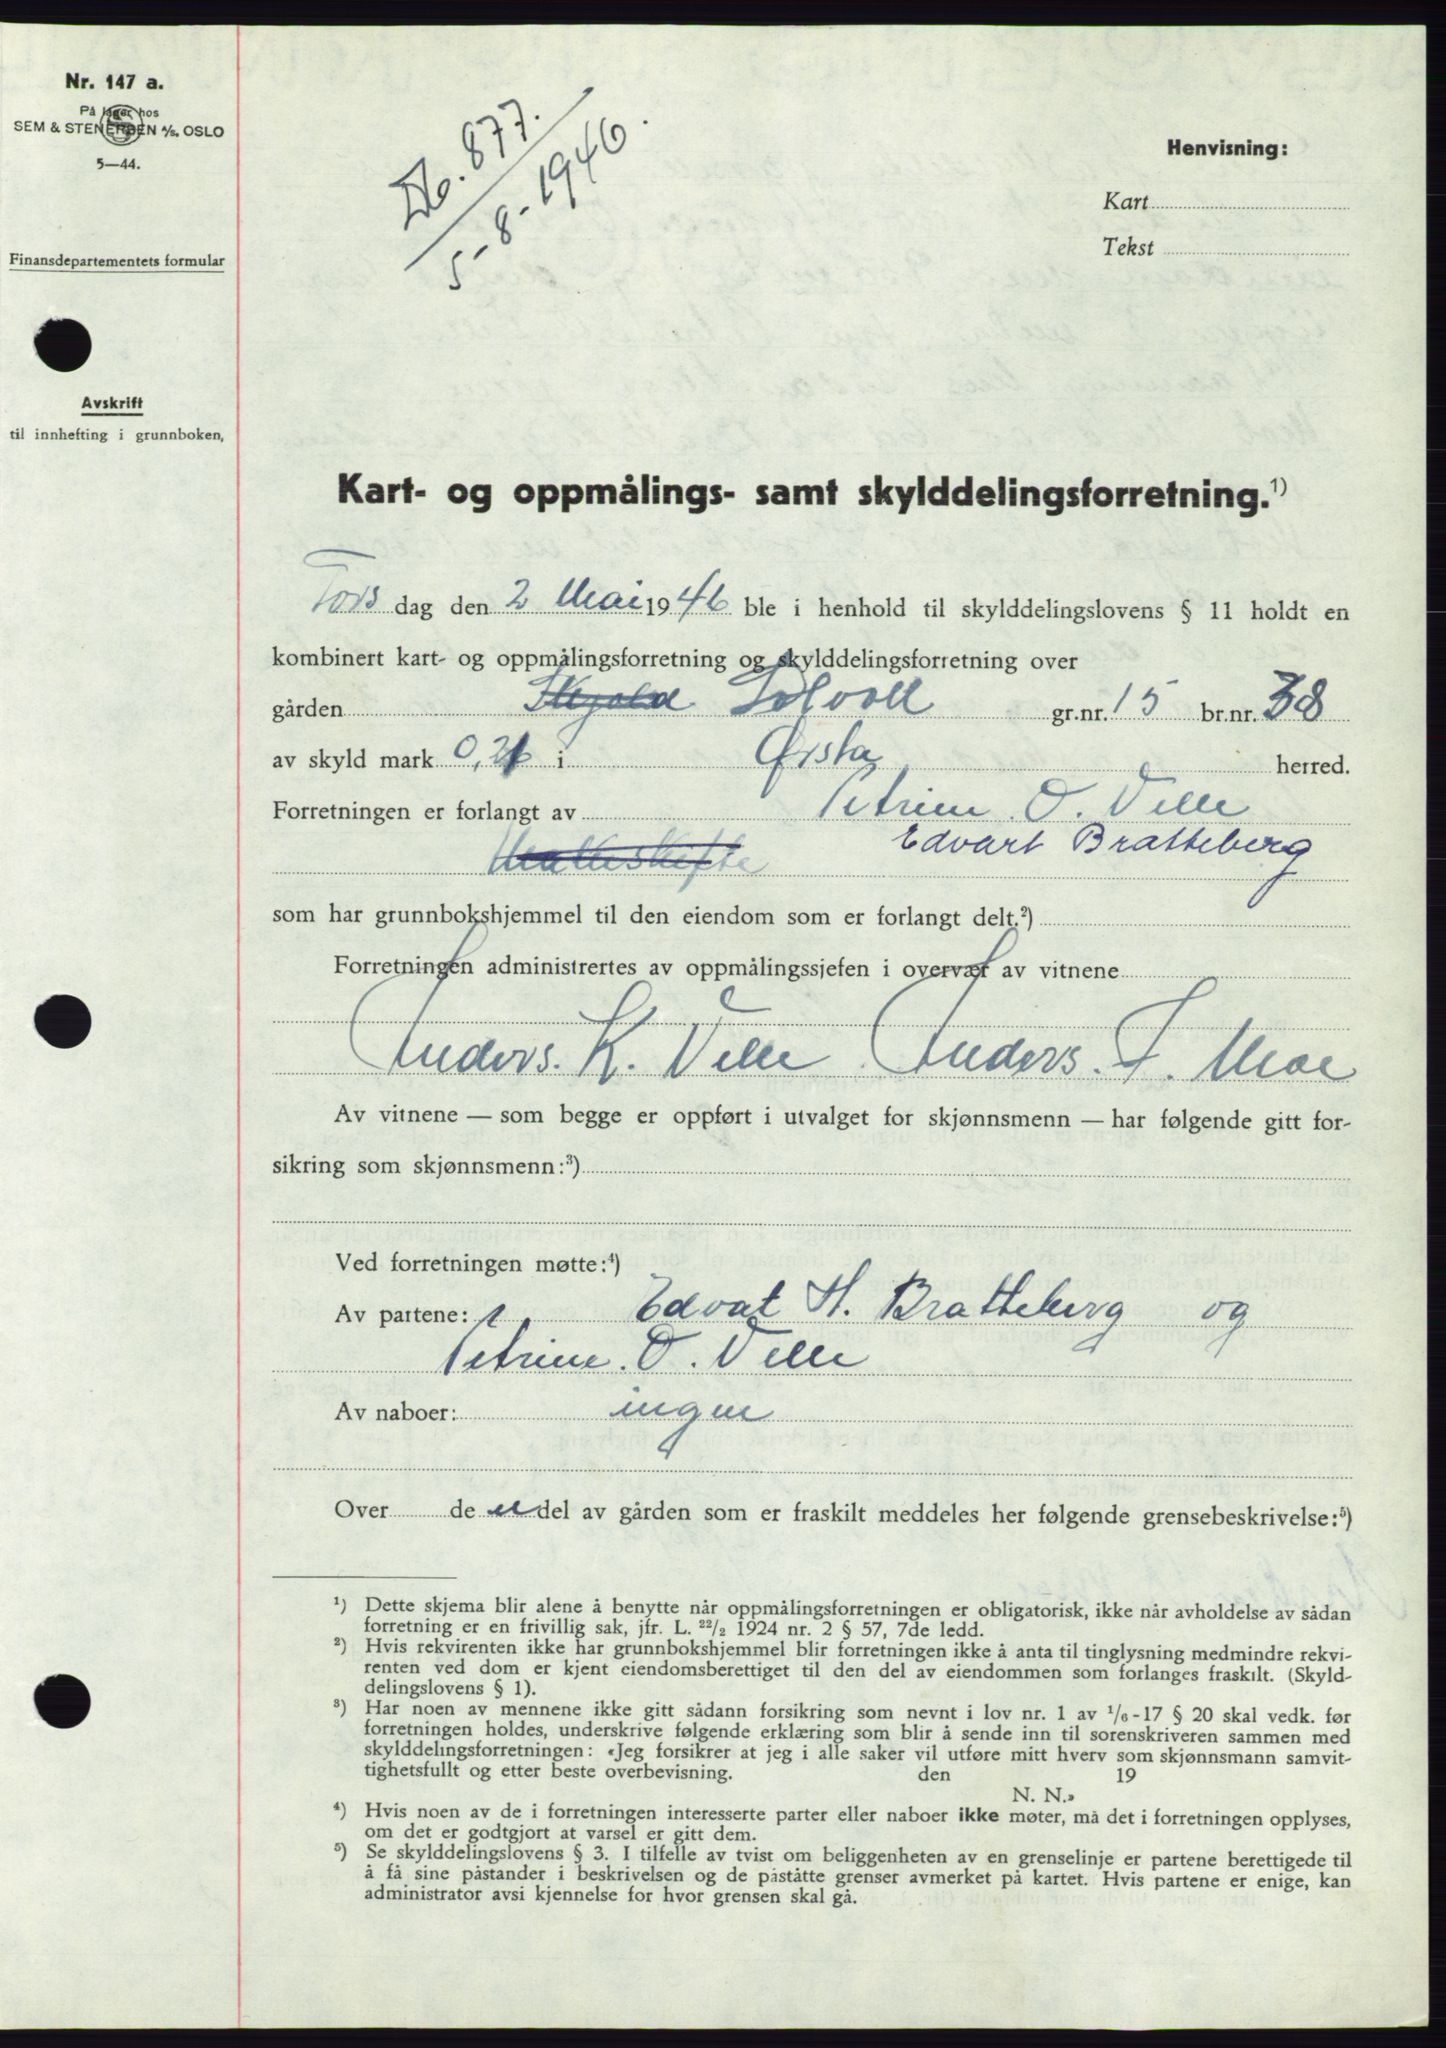 Nr. 147 a.
På lager hos
SEM & STENERSEN A/S. OSLO
5—44.
Finansdepartementets formular
Avskrift
til innhefting i grunnboken,
Db. 877.
5-8-1946.
Henvisning:
Kart
Tekst
Kart- og oppmålings- samt skylddelingsforretning.¹)
Tors dag den 2 Mai 1946 ble i henhold til skylddelingslovens § 11 holdt en
kombinert kart- og oppmålingsforretning og skylddelingsforretning over
gården Solvoll gr.nr. 15 br.nr. 38
av skyld mark 0,21 i Ørsta herred.
Forretningen er forlangt av Petrine O. Velle
Edvart Bratteberg
som har grunnbokshjemmel til den eiendom som er forlangt delt.²)
Forretningen administrertes av oppmålingssjefen i overvær av vitnene
Anders. K. Velle Anders. F. Moe
Av vitnene — som begge er oppført i utvalget for skjønnsmenn — har følgende gitt for-
sikring som skjønnsmenn:³)
Ved forretningen møtte:⁴)
Av partene: Edvat H. Bratteberg og
Petrine. O. Velle
Av naboer: ingen
Over de n del av gården som er fraskilt meddeles her følgende grensebeskrivelse:⁵)
¹) Dette skjema blir alene å benytte når oppmålingsforretningen er obligatorisk, ikke når avholdelse av sådan
forretning er en frivillig sak, jfr. L. ²²/₂ 1924 nr. 2 § 57, 7de ledd.
²) Hvis rekvirenten ikke har grunnbokshjemmel blir forretningen ikke å anta til tinglysning medmindre rekvi-
renten ved dom er kjent eiendomsberettiget til den del av eiendommen som forlanges fraskilt. (Skyld-
delingslovens § 1).
³) Har noen av mennene ikke gitt sådann forsikring som nevnt i lov nr. 1 av ¹/₆-17 § 20 skal vedk. før
forretningen holdes, underskrive følgende erklæring som blir å sende inn til sorenskriveren sammen med
skylddelingsforretningen: «Jeg forsikrer at jeg i alle saker vil utføre mitt hverv som skjønnsmann samvit-
tighetsfullt og etter beste overbevisning. den 19
N. N.»
⁴) Hvis noen av de i forretningen interesserte parter eller naboer ikke møter, må det i forretningen opplyses,
om det er godtgjort at varsel er gitt dem.
⁵) Se skylddelingslovens § 3. I tilfelle av tvist om beliggenheten av en grenselinje er partene berettigede til
å få sine påstander i beskrivelsen og de påståtte grenser avmerket på kartet. Hvis partene er enige, kan
administrator avsi kjennelse for hvor grensen skal gå.